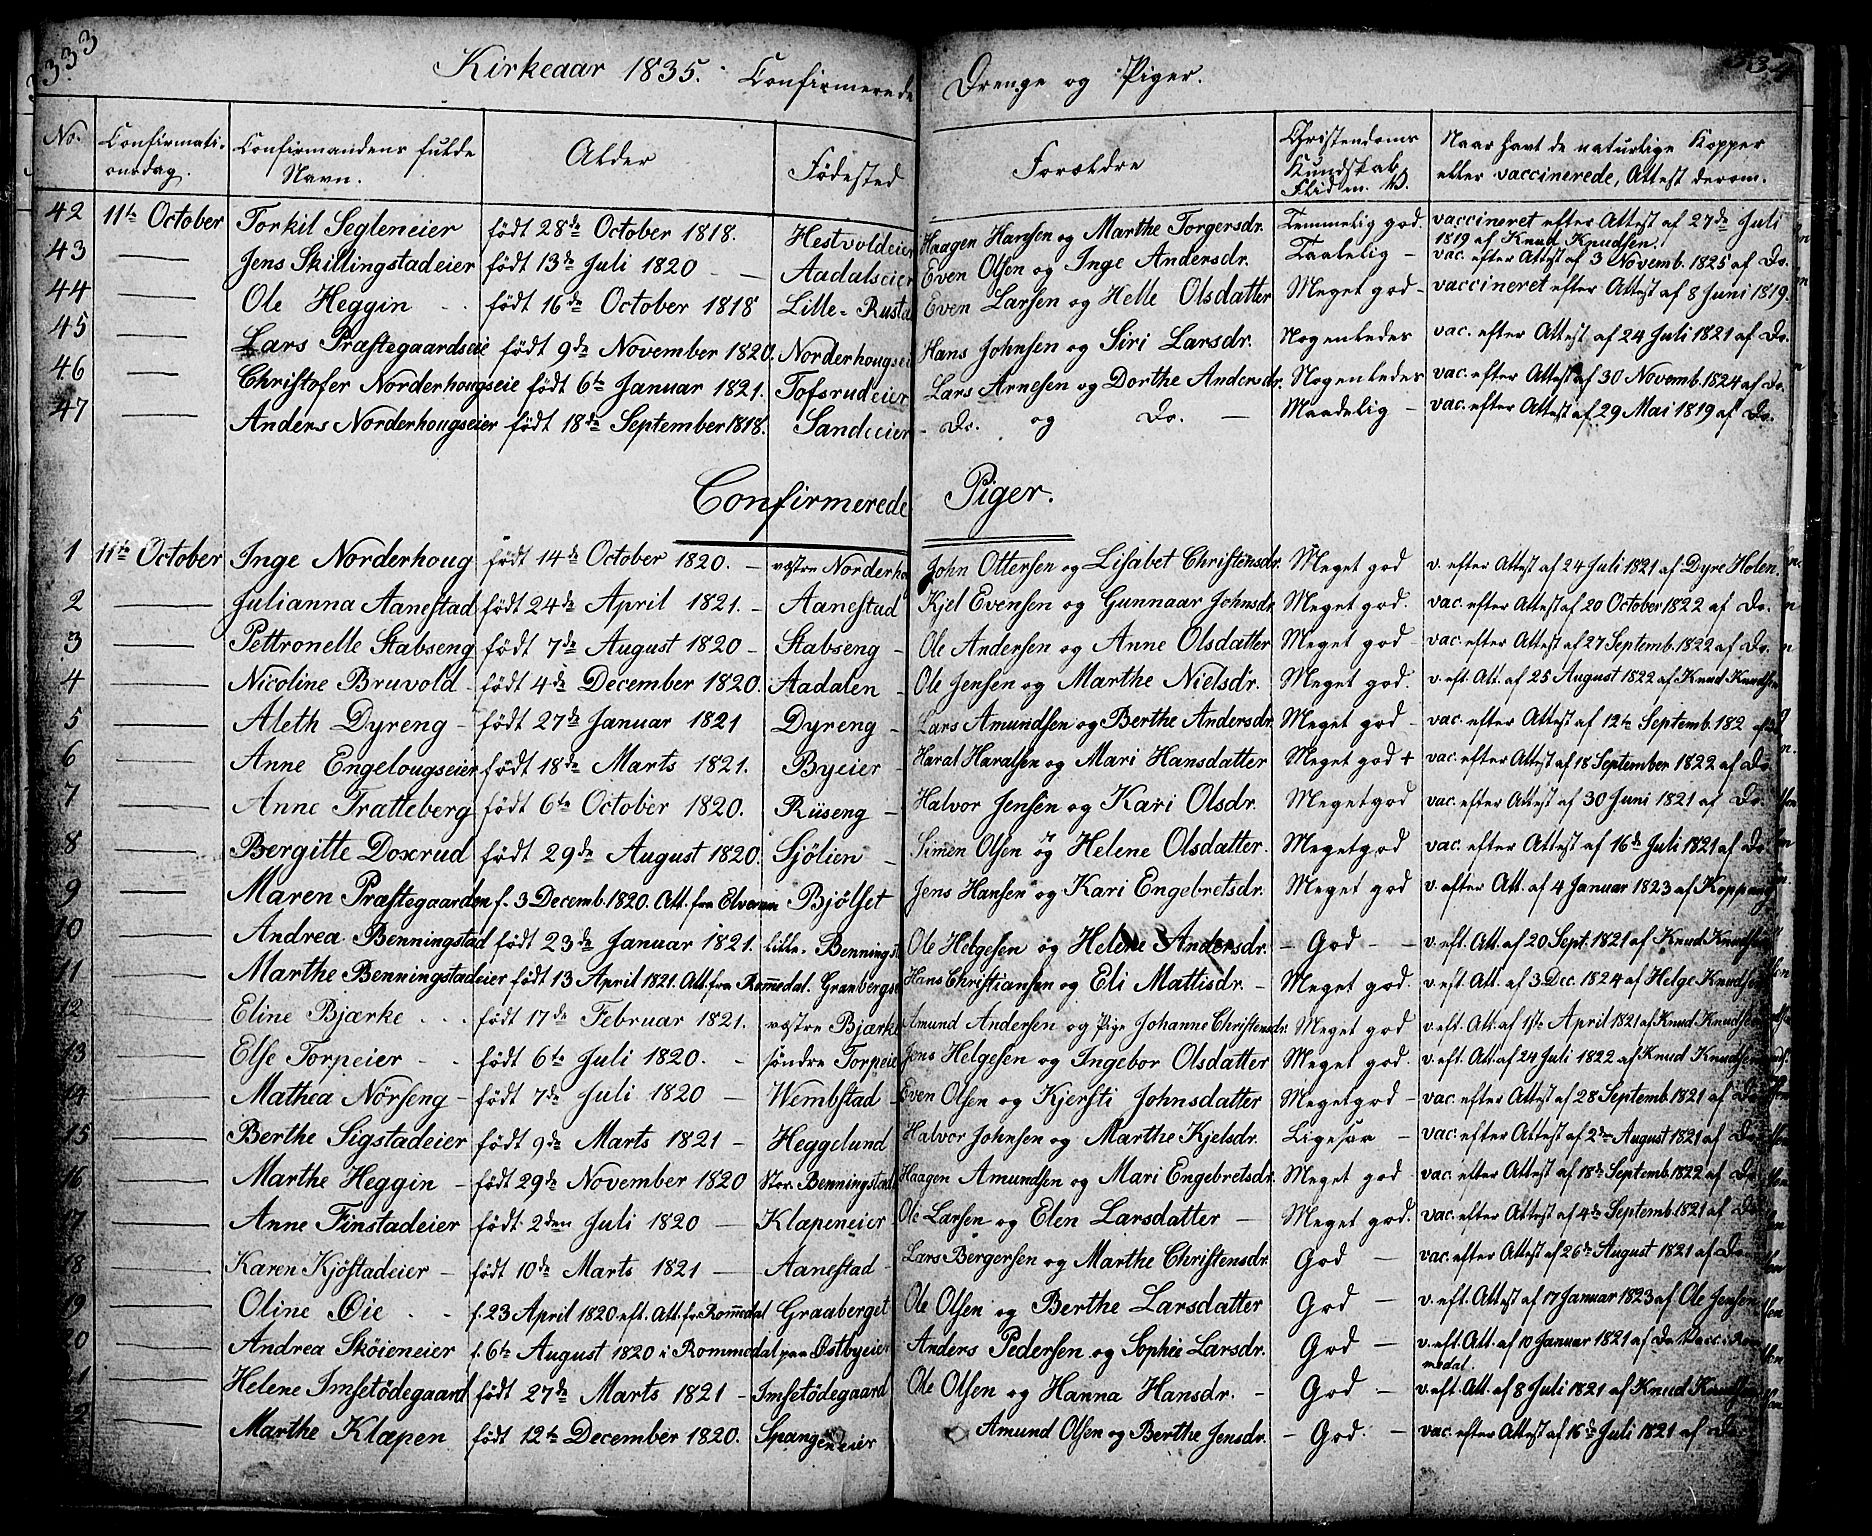 333 334
Kirkeaar 1835. Confirmerede Drenge og Piger.
No. Confirmati- Confirmandens fulde Alder Fødested Forældre Christendoms Naar havt de naturlige Kopper
onsdag. Navn. Kundskab eller vaccinerede, Attest derom.
Flid m. V.
42 11te October Torkil Segleneier født 28de October 1818. Hestvoldeier Haagen Hansen og Marthe Torgersdr. Temmelig god. vaccineret efter Attest af 27de Juli
1819 af Knud Knudsen.
43 — Jens Skillingstadeier født 13de Juli 1820 — Aadalseier Even Olsen og Inge Andersdr. Taalelig — vac. efter Attest af 3 Novemb. 1825 af Do.
44 — Ole Heggin født 16de October 1818 Lille-Rustad Even Larsen og Helle Olsdatter Meget god — vaccineret efter Attest af 8 Juni 1819.
45 — Lars Præstegaardseie født 9de November 1820. Norderhougseie Hans Johnsen og Siri Larsdr. Nogenledes vac. efter Attest af 24 Juli 1821 af Do.
46 — Christofer Norderhougseie født 6te Januar 1821. Tofsrudeier Lars Arnesen og Dorthe Andersdr. Nogenledes vac. efter Attest af 30 Novemb. 1824 af Do.
47 — Anders Norderhougseier født 18de September 1818. Sandeeier — Do. og Do. — Maadelig — vac. efter Attest af 29 Mai 1819 af Do.
Confirmerede Piger.
1 11te October Inge Norderhoug født 14de October 1820. — vestre Norderho John Ottersen og Lisabet Christensdr. Meget god v. efter Attest af 24 Juli 1821 af Dyre Holen.
2 — Julianna Aanestad født 24de April 1821. — Aanestad Kjel Evensen og Gunnaar Johnsdr. Meget god. vac. efter Attest af 20 October 1822 af Do.
3 — Pettronelle Stabseng født 7de August 1820 — Stabseng — Ole Andersen og Anne Olsdatter Meget god vac. efter Attest af 27 Septemb. 1822 af Do.
4 — Nicoline Bruvold født 4de December 1820. Aadalen — Ole Jensen og Marthe Nielsdr. Meget god. v. eft. Att. af 25 August 1822 af Knud Knudsen
5 — Aleth Dyreng — født 27de Januar 1821 Dyreng — Lars Amundsen og Berthe Andersdr. Meget god — vac. efter Attest af 12te Septemb. 182
6 — Anne Engelougseier født 18de Marts 1821. Byeier — Haral Haralsen og Mari Hansdatter Meget god + vac. efter Attest af 18 September 1822 af Do.
7 — Anne Tratteberg født 6te October 1820. Riiseng — Halvor Jensen og Kari Olsdr. Meget god vac. efter Attest af 30 Juni 1821 af Do.
8 — Bergitte Doxrud født 29de August 1820. Sjølien — Simen Olsen og Helene Olsdatter. Meget god vac. efter Attest af 16de Juli 1821 af Do.
9 — Maren Præstegaarden f. 3 Decemb. 1820. Att. fra Elverum Bjølset Jens Hansen og Kari Engebretsdr. Meget god v. efter Att. af 4 Januar 1823 af Koppang
10 — Andrea Benningstad født 23de Januar 1821. lille-Benningst Ole Helgesen og Helene Andersdr. — God — v. eft. Att. af 20 Sept. 1821 af Knud Knudsen
11 — Marthe Benningstadeier født 13 April 1821. Att. fra Rommedal. Granbergs Hans Christiansen og Eli Mattisdr. — Meget god. v. eft. Att. af 3 Dec. 1824 af Helge Knudsen
12 — Eline Bjærke født 17de Februar 1821. vestre Bjærke Amund Andersen og Pige Johanne Christensdr. Meget god v. eft. Att. af 1ste April 1821 af Knud Knudsen
13 — Else Torpeier født 6te Juli 1820. — søndre Torpeie Jens Helgesen og Ingebor Olsdatter Meget god. v. eft. Att. af 24 Juli 1822 af Knud Knudsen
14 — Mathea Nørseng — født 7de Juli 1820 — Wembstad — Even Olsen og Kjersti Johnsdatter Meget god — vac. efter Attest af 28 Septemb. 1821 af Do.
15 — Berthe Sigstadeier født 9de Marts 1821 — Heggelund Halvor Johnsen og Marthe Kjelsdr. Ligesaa — vac. efter Attest af 2den August 1821 af Do.
16 — Marthe Heggin — født 29de November 1820 Stor-Benningstad Haagen Amundsen og Mari Engebretsdr. Meget god — vac. efter Attest af 18de Septemb. 1822 af Do.
17 — Anne Finstadeier født 2den Juli 1820 — Klæpeneier Ole Larsen og Elen Larsdatter — Meget god. vac. efter Attest af 4de Septemb. 1821 af Do.
18 — Karen Kjøstadeier — født 10de Marts 1821 — Aanestad — Lars Bergersen og Marthe Christensdr. God — vac. efter Attest af 26de August 1821 af Do.
19 — Oline Øie f. 23 April 1820 eft. Att. fr. Rommedal Graaberget Ole Olsen og Berthe Larsdatter God — v. eft. Attest af 17 Januar 1823 af Ole Jensen
20 — Andrea Skøieneier f. 6te August 1820 i Rommedal paa Østbyeier Anders Pedersen og Sophie Larsdr. God — v. eft. Att. af 10 Januar 1821 af Do. Vacc. i Rom-
medal.
21 — Helene Imsetødegaard født 27de Marts 1821 — Imsetødegaard Ole Olsen og Hanna Hansdr. — God — v. eft. Att. af 8 Juli 1821 af Knud Knudsen
22 — Marthe Klæpen født 12te December 1820. Spangeneier Amund Olsen og Berthe Jensdr. — God. — vac. efter Attest af 16de Juli 1821 af Do.